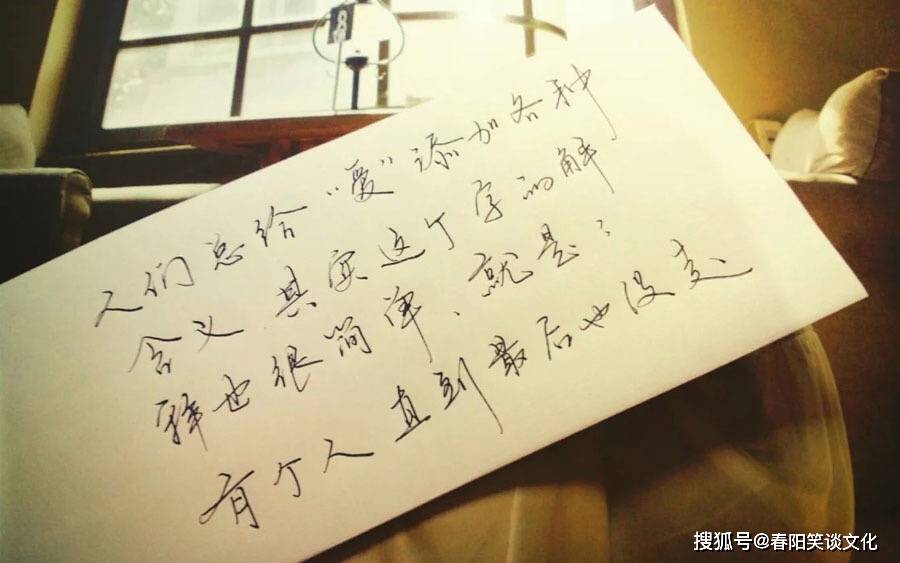 人们总给“爱”添加各种
含义 其实这个字的解
释也很简单、就是：
有个人直到最后也没走
8
搜狐号@春阳笑谈文化